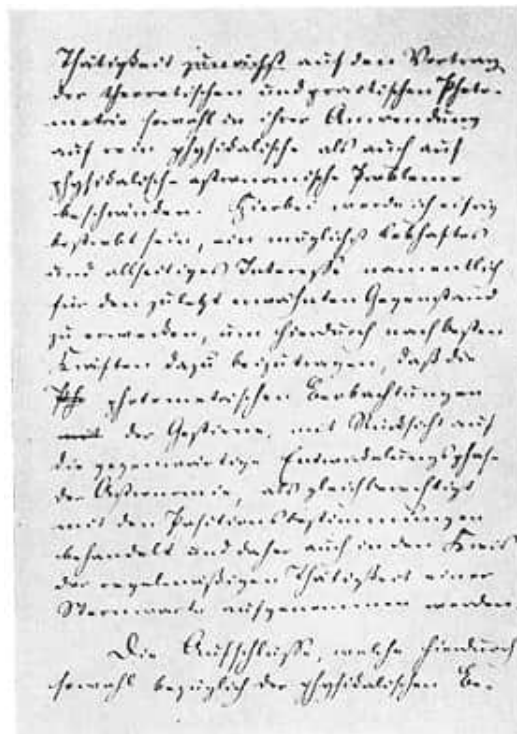 Thätigkeit zunächst auf den Vortrag
der theoretischen und practischen Photo-
metrie sowohl in ihrer Anwendung
auf rein physikalische als auch auf
physikalische astronomische Probleme
beschränken. Hierbei werde ich eifrig
bestrebt sein, ein möglichst lebhaftes
und allseitiges Interesse namentlich
für den zuletzt erwähnten Gegenstand
zu erwecken, um hierdurch nach besten
Kräften dazu beizutragen, daß die
photometrischen Beobachtungen
der Gestirne, mit Rücksicht auf
die gegenwärtige Entwickelungsphase
der Astronomie, als gleichberechtigt
mit den Positionsbestimmungen
behandelt und daher auch in den Kreis
der regelmäßigen Thätigkeit einer
Sternwarte aufgenommen werden
Die Aufschlüsse, welche hierdurch
sowohl bezüglich der physikalischen Be-